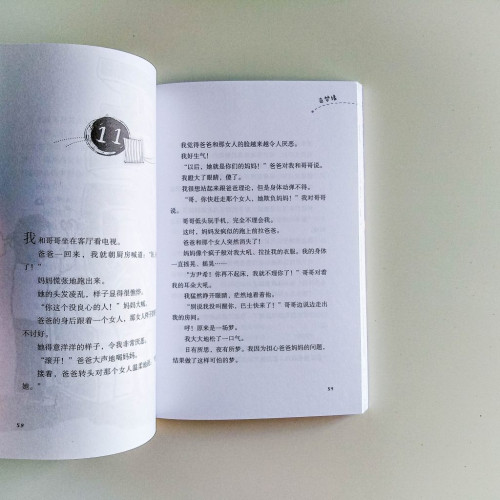 11
我和哥哥坐在客厅看电视。
爸爸一回来，我就朝厨房喊道：“
了！”
妈妈慌张地跑出来。
她的头发凌乱，样子显得很憔悴。
“你这个没良心的人！”妈妈大喊。
爸爸的身后跟着一个女人，那女人
不过好。
她得意洋洋的样子，令我非常厌恶。
“滚开！”爸爸大声地喝妈妈。
接着，爸爸转头对那个女人温柔地
她。”
59
我觉得爸爸和那女人的脸越来越令人厌恶。
我好生气！
“以后，她就是你们的妈妈！”爸爸对我和哥哥说。
我瞪大了眼睛，傻了。
我很想站起来跟爸爸理论，但是身体动弹不得。
“哥，你快赶走那个女人，她欺负妈妈！”我对哥哥
说。
哥哥低头玩手机，完全不理会我。
这时，妈妈发疯似的跑上前拉爸爸。
爸爸和那个女人突然消失了！
妈妈像个疯子般对我大吼，拉扯我的衣服。我的身体
一直摇晃，摇晃……
“方尹希！你再不起床，我就不理你了！”哥哥对着
我的耳朵大吼。
我猛然睁开眼睛，茫然地看着他。
“别说我没叫醒你，巴士快来了！”哥哥边说边走出
我的房间。
呼！原来是一场梦。
我大大地松了一口气。
日有所思，夜有所梦。我因为担心爸爸妈妈的问题，
结果做了这样可怕的梦。